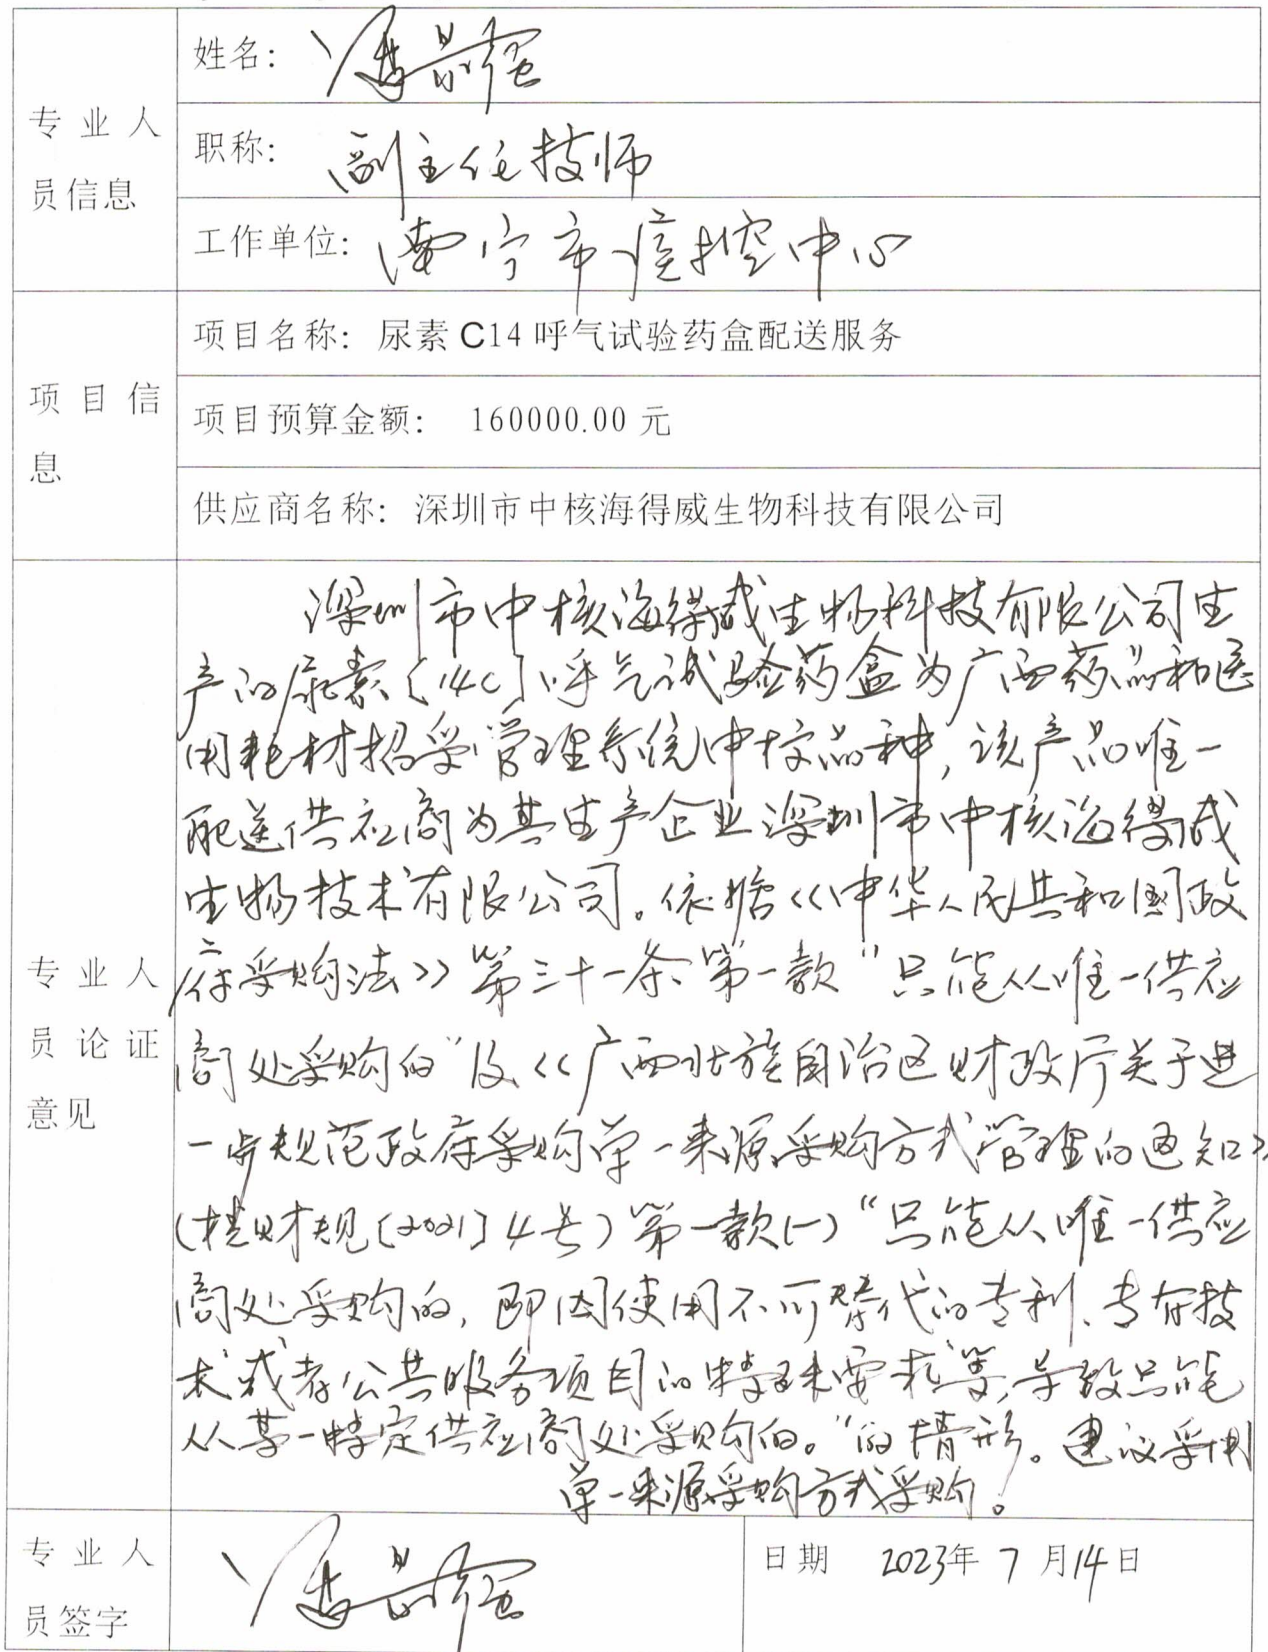 专业人员信息
姓名：
职称：副主任技师
工作单位：南宁市疾控中心
项目信息
项目名称：尿素 C14 呼气试验药盒配送服务
项目预算金额： 160000.00 元
供应商名称：深圳市中核海得威生物科技有限公司
专业人员论证意见
深圳市中核海得威生物科技有限公司生
产的尿素〔14C〕呼气试验药盒为广西药品和医
用耗材招采管理系统中标品种，该产品唯一
配送供应商为其生产企业深圳市中核海得威
生物技术有限公司。依据《中华人民共和国政
府采购法》第三十一条第一款“只能从唯一供应
商处采购的”及《广西壮族自治区财政厅关于进
一步规范政府采购单一来源采购方式管理的通知》
（桂财规〔2021〕4号）第一款（一）“只能从唯一供应
商处采购的，即因使用不可替代的专利、专有技
术或者公共服务项目的特殊要求等，导致只能
从某一特定供应商处采购的。”的情形。建议采用
单一来源采购方式采购。
专业人员签字
日期 2023年 7 月14日